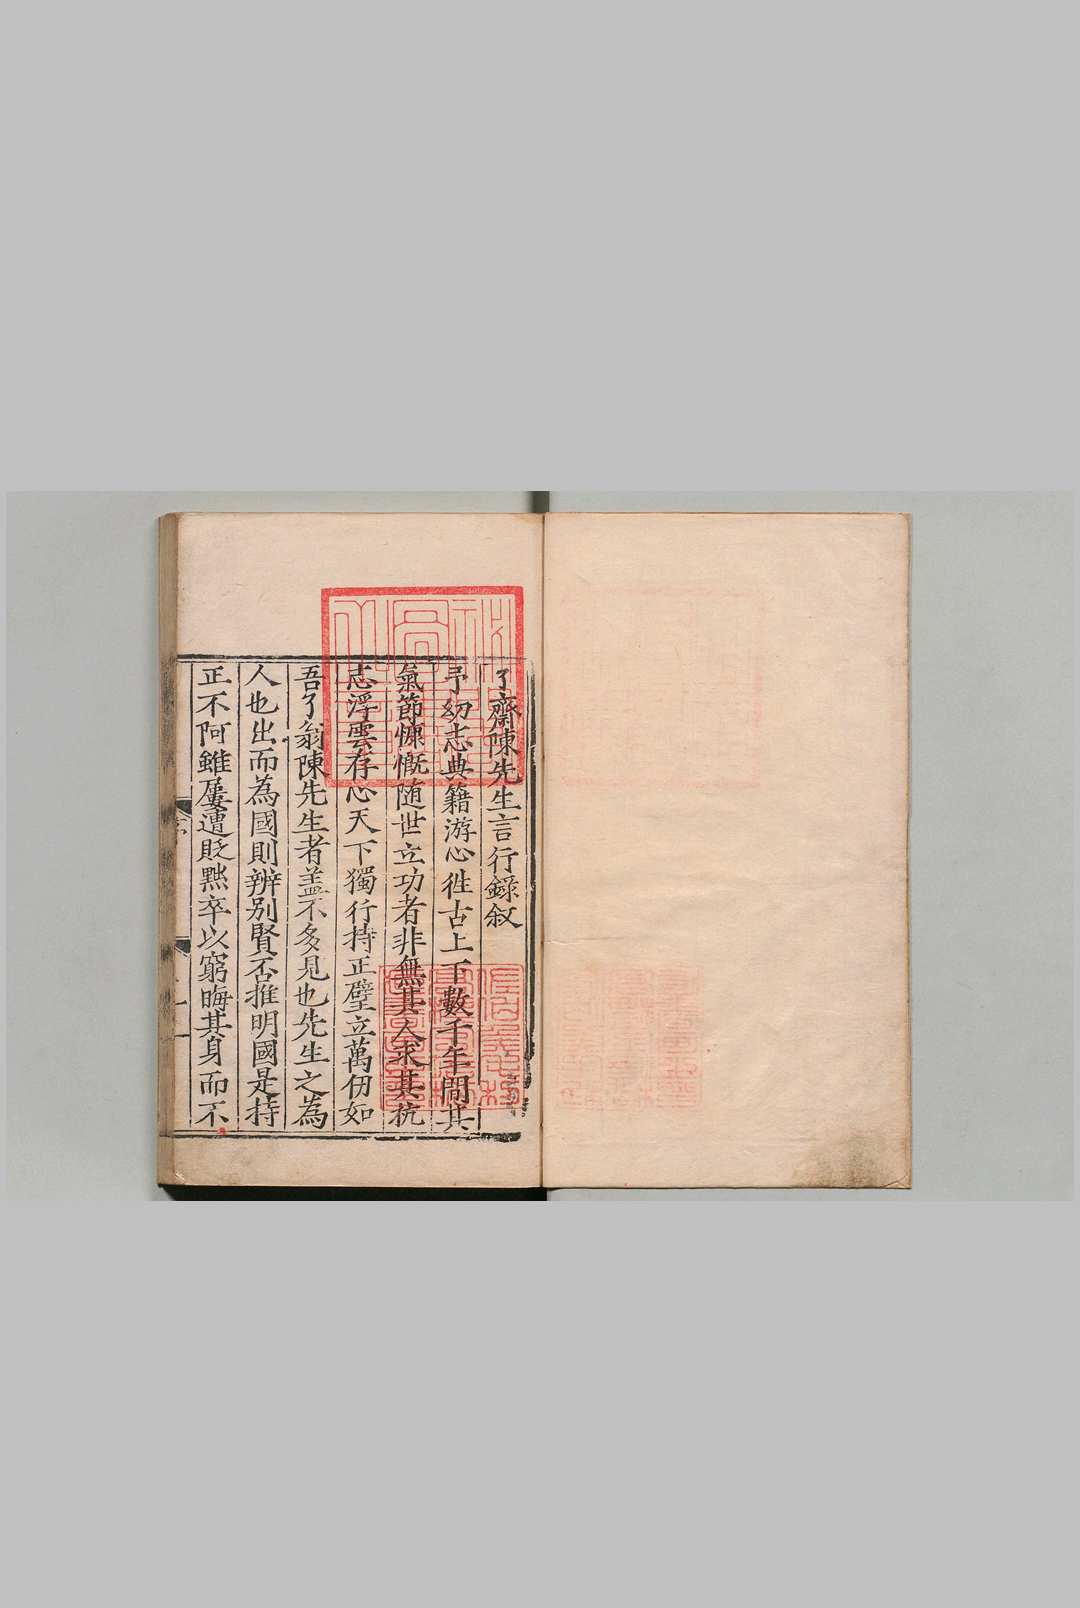 了齋陳先生言行錄叙
予幼志典籍游心徃古上下數千年間其
氣節慷慨随世立功者非無其人求其抗
志浮雲存心天下獨行持正壁立萬仞如
吾了翁陳先生者盖不多見也先生之為
人也出而為國則辨別賢否推明國是持
正不阿雖屢遭貶黜卒以窮晦其身而不